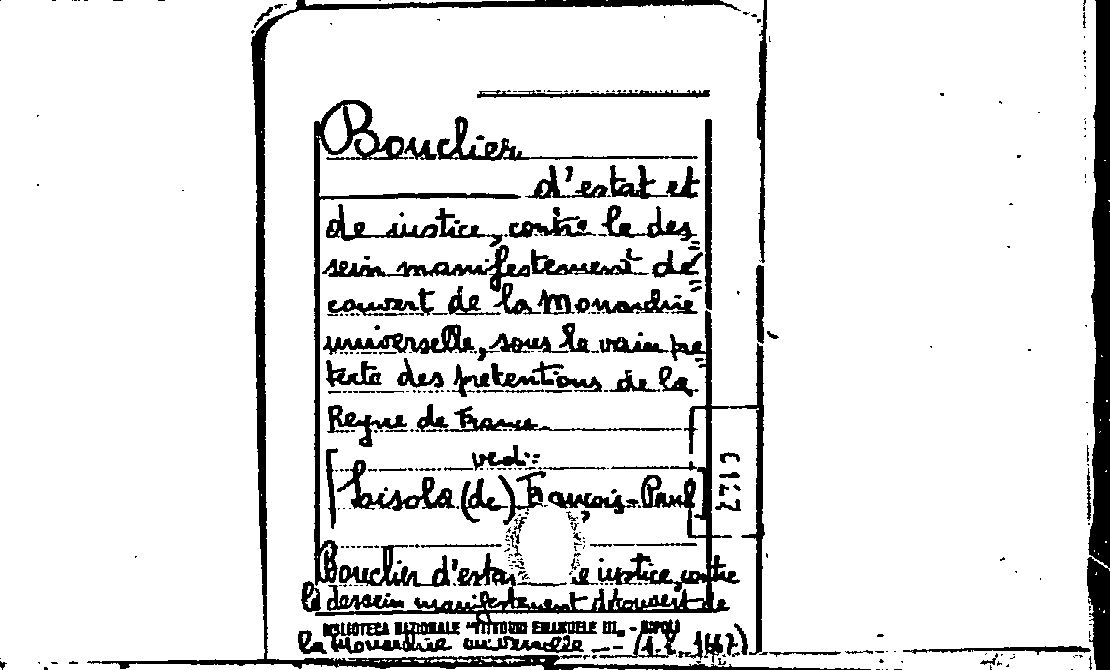 Bouclier
d'estat et
de iustice, contre le des=
sein manifestement dé=
couvert de la Monarchie
universelle, sous le vain pre=
texte des pretentions de la
Reyne de France.
vedi:
[Lisola (de) François-Paul]
Bouclier d'estat de iustice, contre
le dessein manifestement découvert de
BIBLIOTECA NAZIONALE "VITTORIO EMANUELE III" - NAPOLI
la Monarchie universelle - (1667)